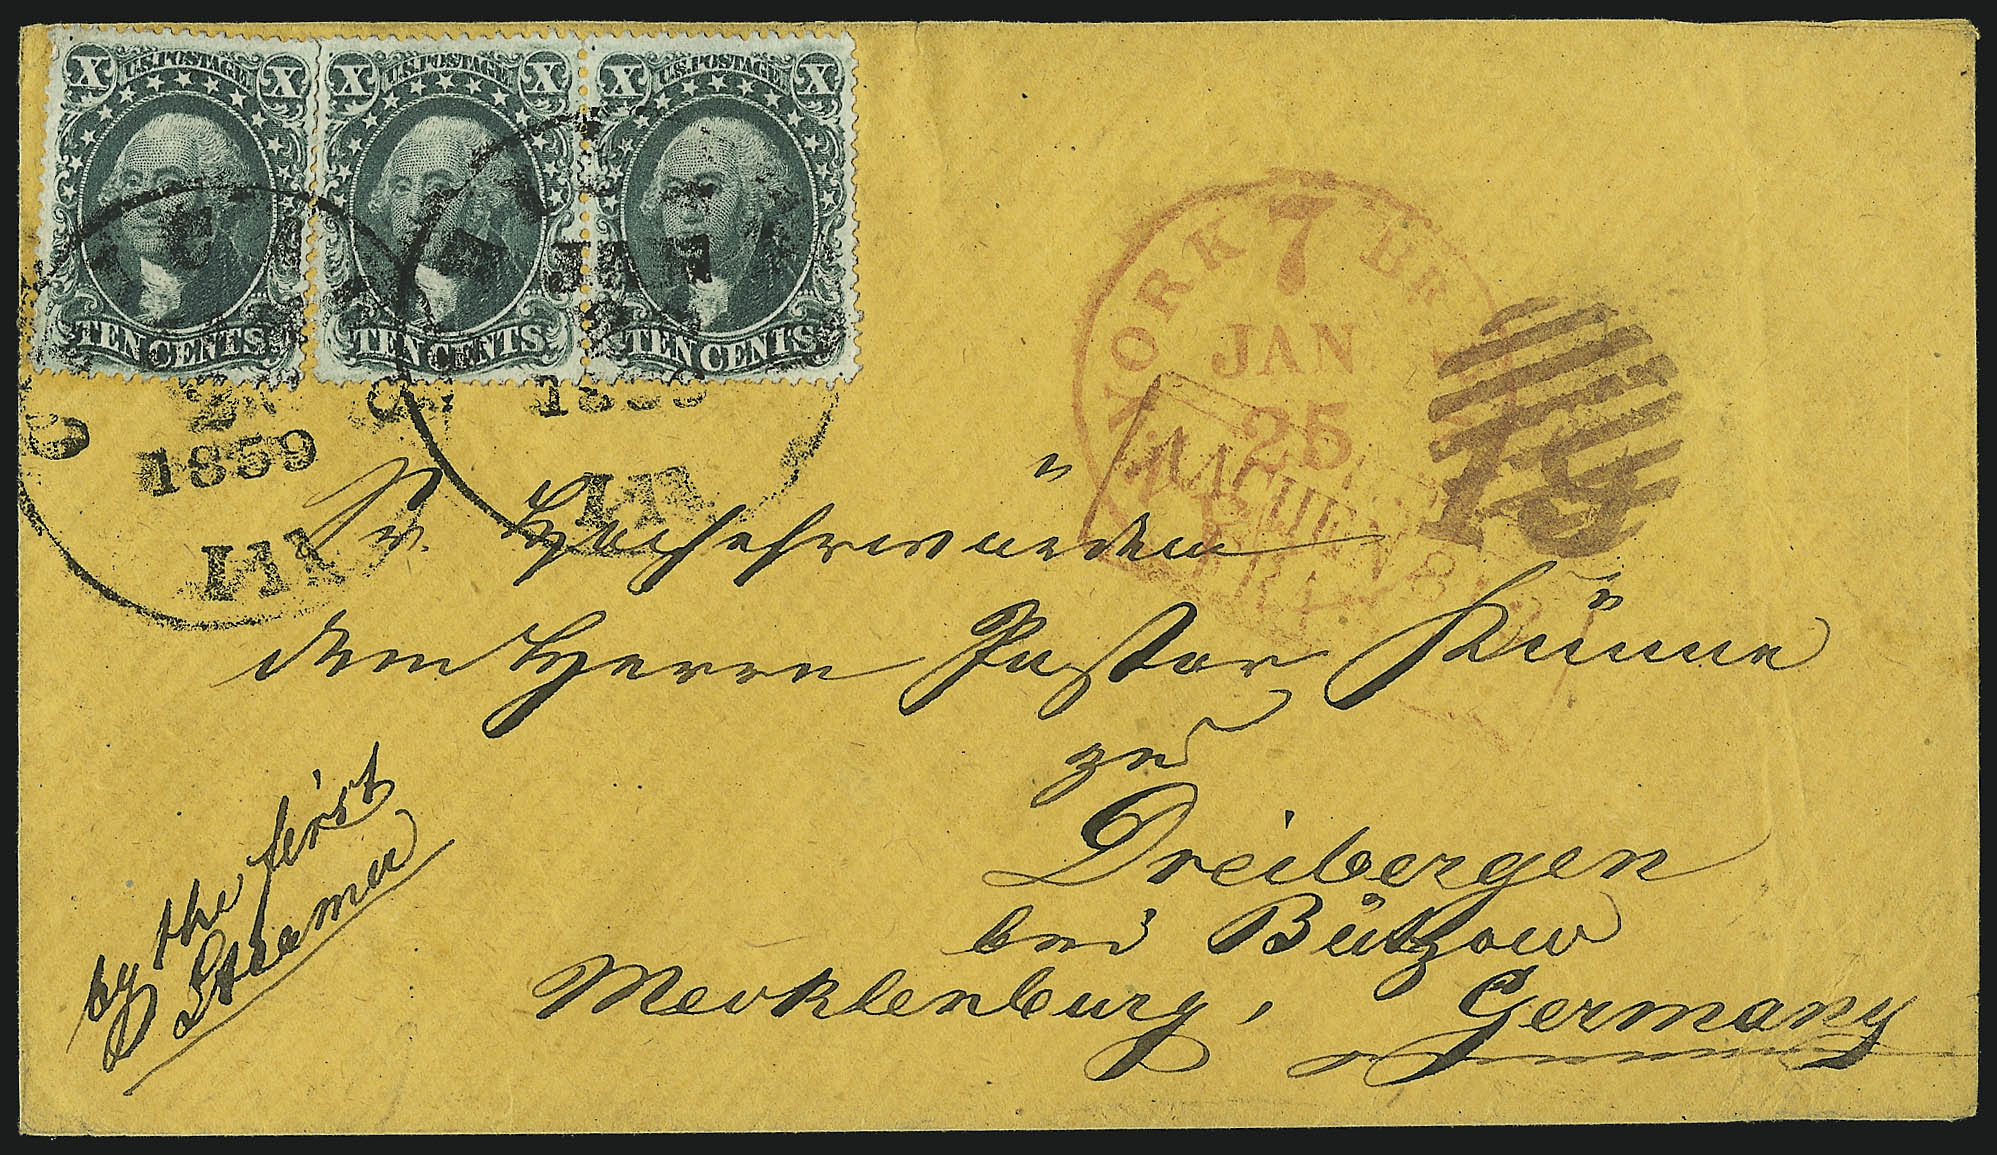 X U.S. POSTAGE X
TEN CENTS
X U.S. POSTAGE X
TEN CENTS
X U.S. POSTAGE X
TEN CENTS
2
1859
Ill
JAN
1859
Ill
YORK 7 BR
JAN
25
AACHEN
FR
19
Sr. Hochehrwürden
dem Herrn Pastor Künne
zu
Dreibergen
bei Bützow
Mecklenburg, Germany
by the first
Steamer